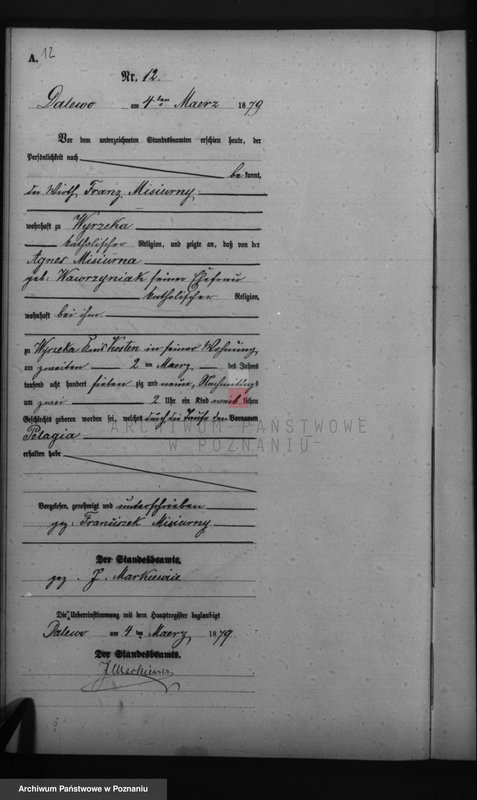 A. 12
Nr. 12.
Dalewo am 4ten Maerz 1879
Vor dem unterzeichneten Standesbeamten erschien heute, der
Persönlichkeit nach
be kannt,
der Wirth Franz Misiurny
wohnhaft zu Wyrzeka
katholischer Religion, und zeigte an, daß von der
Agnes Misiurna
geb: Wawrzyniak seiner Ehefrau
katholischer Religion,
wohnhaft bei ihm
zu Wyrzeka Kreis Kosten in seiner Wohnung
am zweiten 2 ten Maerz des Jahres
tausend acht hundert sieben zig und neun, Nachmittags
um zwei 2 Uhr ein Kind weib lichen
Geschlechts geboren worden sei, welches durch die Taufe den Vornamen
Pelagia
erhalten habe
Vorgelesen, genehmigt und unterschrieben
gez. Franciszek Misiurny
Der Standesbeamte.
gez. J. Markiewicz
Die Uebereinstimmung mit dem Hauptregister beglaubigt
Dalewo am 4 ten Maerz 1879.
Der Standesbeamte.
J Markiewicz
ARCHIWUM PAŃSTWOWE
W POZNANIU
Archiwum Państwowe w Poznaniu